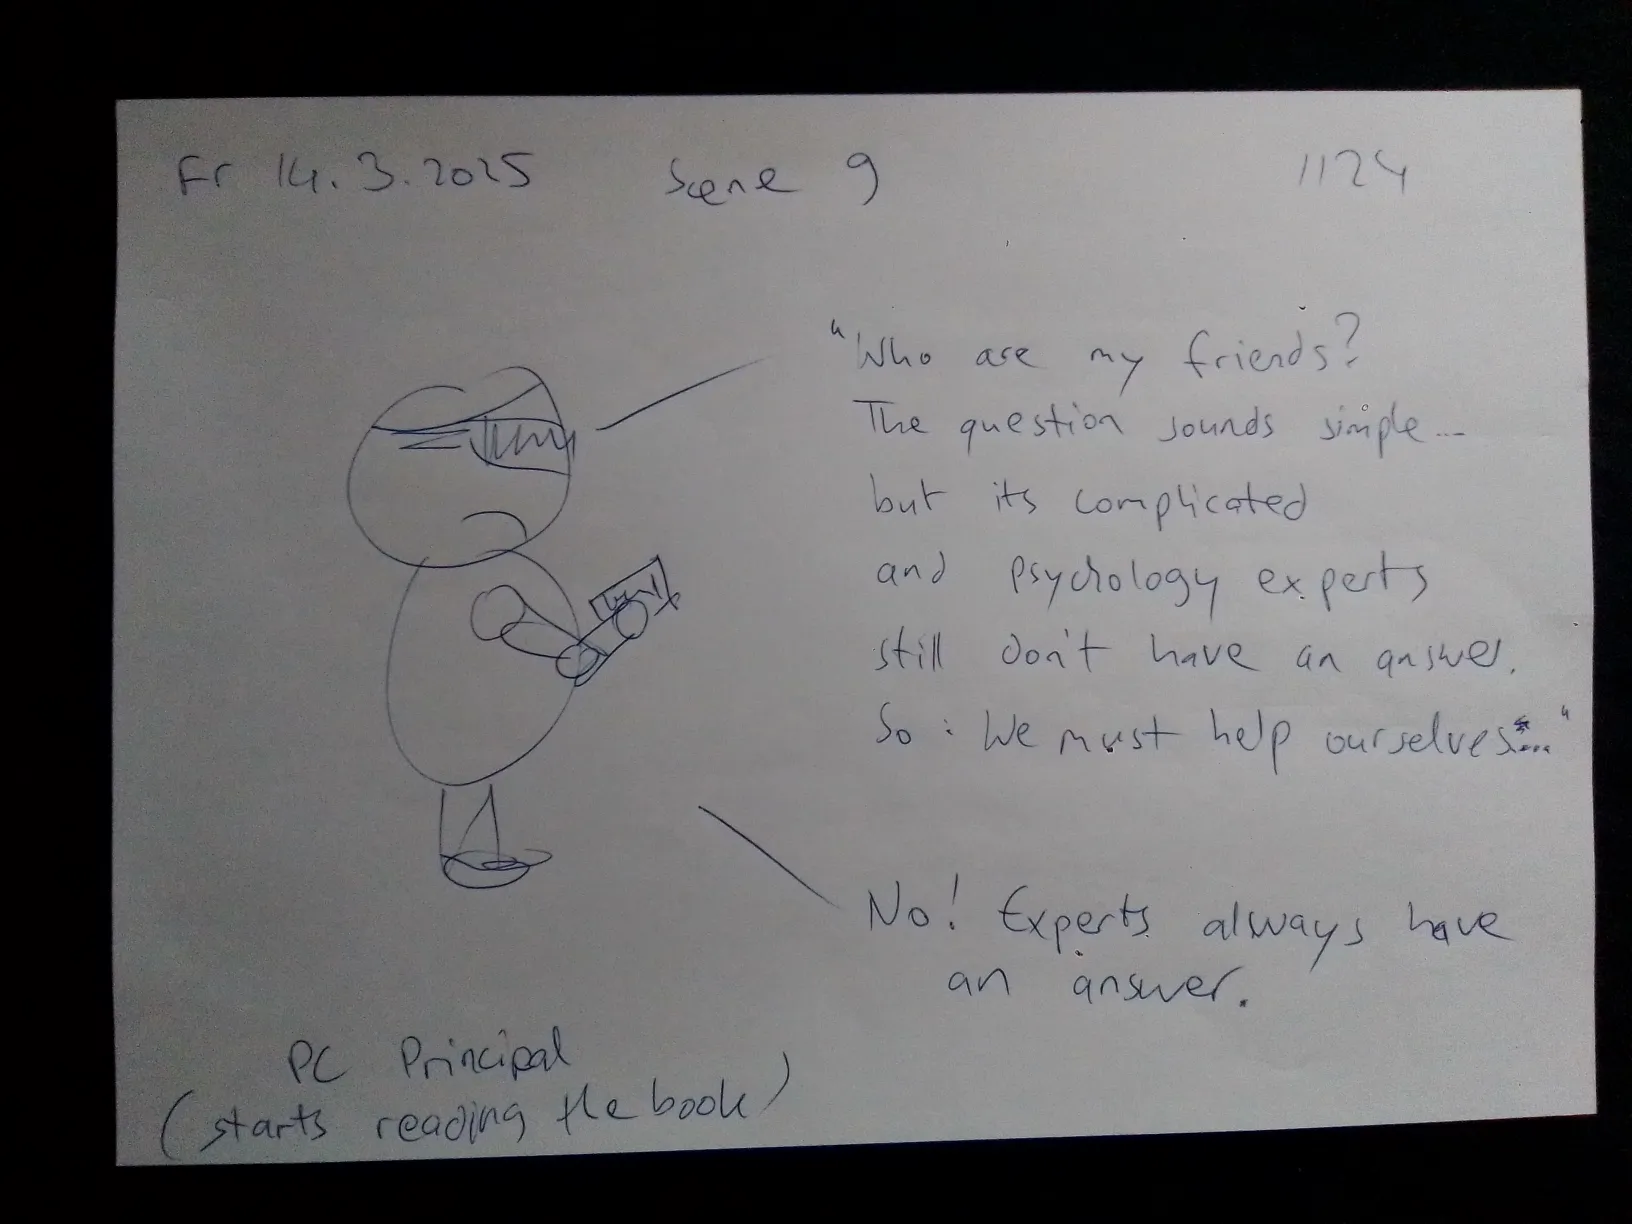 Fr 14.3.2025 Scene 9 1124
"Who are my friends?
The question sounds simple...
but its complicated
and psychology experts
still don't have an answer.
So: We must help ourselves..."
No! Experts always have
an answer.
PC Principal
(starts reading the book)